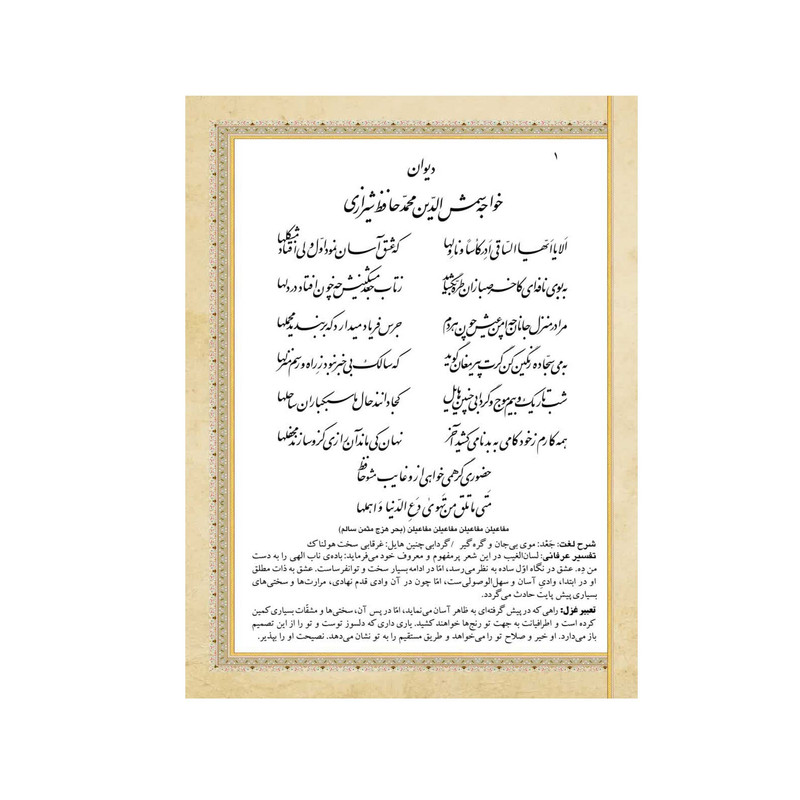 ۱
دیوان
خواجه شمس الدّین محمّد حافظ شیرازی
اَلا یا اَیّهَا السّاقی اَدِرکَأساً وَ ناوِلها که عشق آسان نمود اوّل ولی افتاد مشکلها
به بوی نافه‌ای کاخر صبا زان طرّه بگشاید ز تاب جعد مشکینش چه خون افتاد در دلها
مرا در منزل جانان چه امن عیش چون هر دم جرس فریاد می‌دارد که بربندید محملها
به می سجّاده رنگین کن گرت پیر مغان گوید که سالک بی‌خبر نبود ز راه و رسم منزلها
شب تاریک و بیم موج و گردابی چنین هایل کجا دانند حال ما سبکباران ساحلها
همه کارم ز خودکامی به بدنامی کشید آخر نهان کی ماند آن رازی کزو سازند محفلها
حضوری گر همی خواهی ازو غایب مشو حافظ
مَتیٰ ما تَلقَ مَن تَهویٰ دَعِ الدّنیا وَ اهملها
مفاعیلن مفاعیلن مفاعیلن مفاعیلن (بحر هزج مثمن سالم)
شرح لغت: جَعْد: موی پی‌جان و گره گیر / گردابی چنین هایل: غرقابی سخت هولناک
تفسیر عرفانی: لسان‌الغیب در این شعر پرمفهوم و معروف خود می‌فرماید: باده‌ی ناب الهی را به دست
من دِه. عشق در نگاه اوّل ساده به نظر می‌رسد، امّا در ادامه بسیار سخت و توانفرساست. عشق به ذات مطلق
او در ابتدا، وادیِ آسان و سهل‌الوصولی‌ست، امّا چون در آن وادی قدم نهادی، مرارت‌ها و سختی‌های
بسیاری پیش پایت حادث می‌گردد.
تعبیر غزل: راهی که در پیش گرفته‌ای به ظاهر آسان می‌نماید، امّا در پس آن، سختی‌ها و مشقّات بسیاری کمین
کرده است و اطرافیانت به جهت تو رنج‌ها خواهند کشید. یاری داری که دلسوز توست و تو را از این تصمیم
باز می‌دارد. او خیر و صلاح تو را می‌خواهد و طریق مستقیم را به تو نشان می‌دهد. نصیحت او را بپذیر.